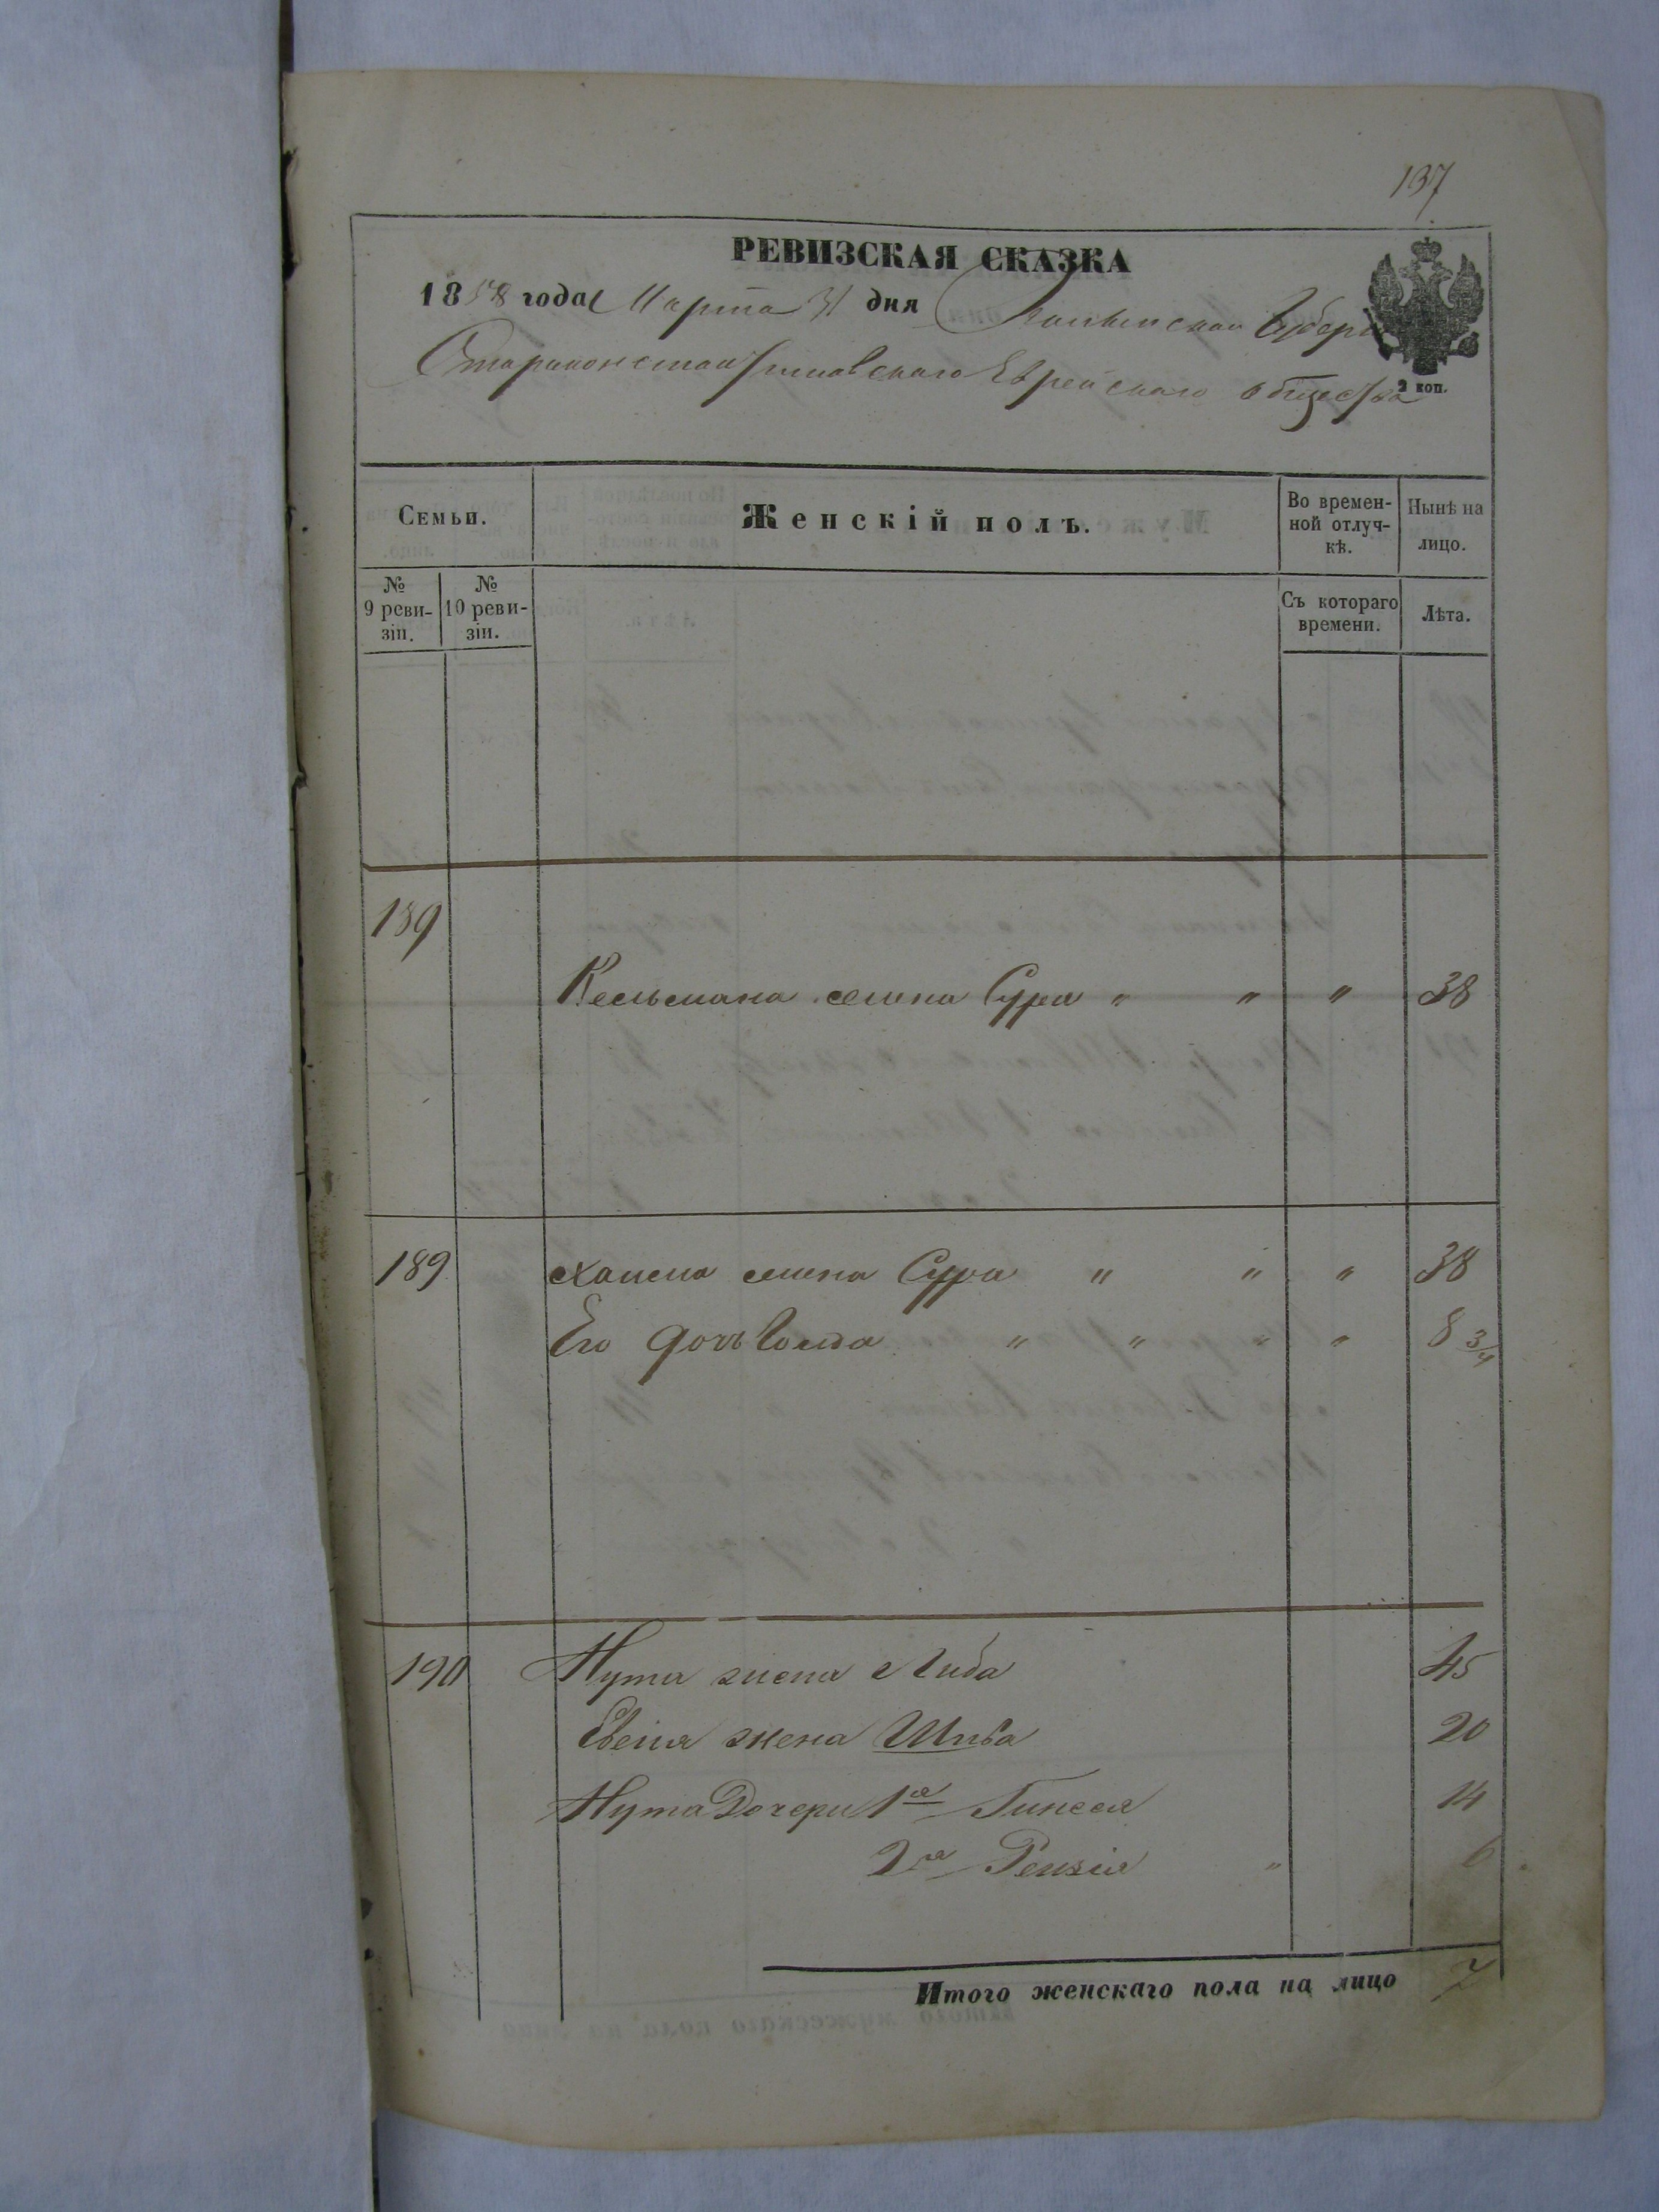 137
РЕВИЗСКАЯ СКАЗКА
1858 года Марта 31 дня Волынской Губерн
Староконстантиновскаго Еврейскаго общества
2 коп.
Семьи. Женскій полъ. Во времен-ной отлуч-кѣ. Нынѣ на лицо.
№ 9 реви-зіи. № 10 реви-зіи. Съ котораго времени. Лѣта.
189
Кельмана жена Сура " " " 38
189 Хаима жена Сура " " " 38
Его дочь Голда " " " " 8 3/4
190 Нута жена Либа 45
жена Шива 20
Нута Дочери 1я 14
2я " 6
Итого женскаго пола на лицо 7